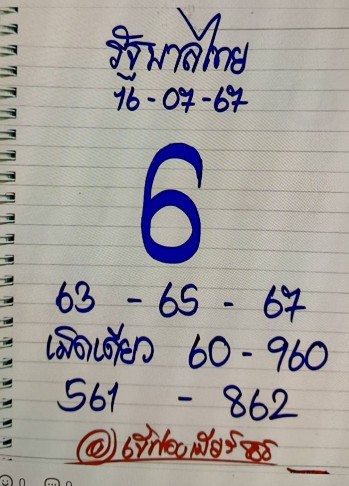 รัฐบาลไทย
16-07-67
6
63 - 65 - 67
เม็ดเดียว 60 - 960
561 - 862